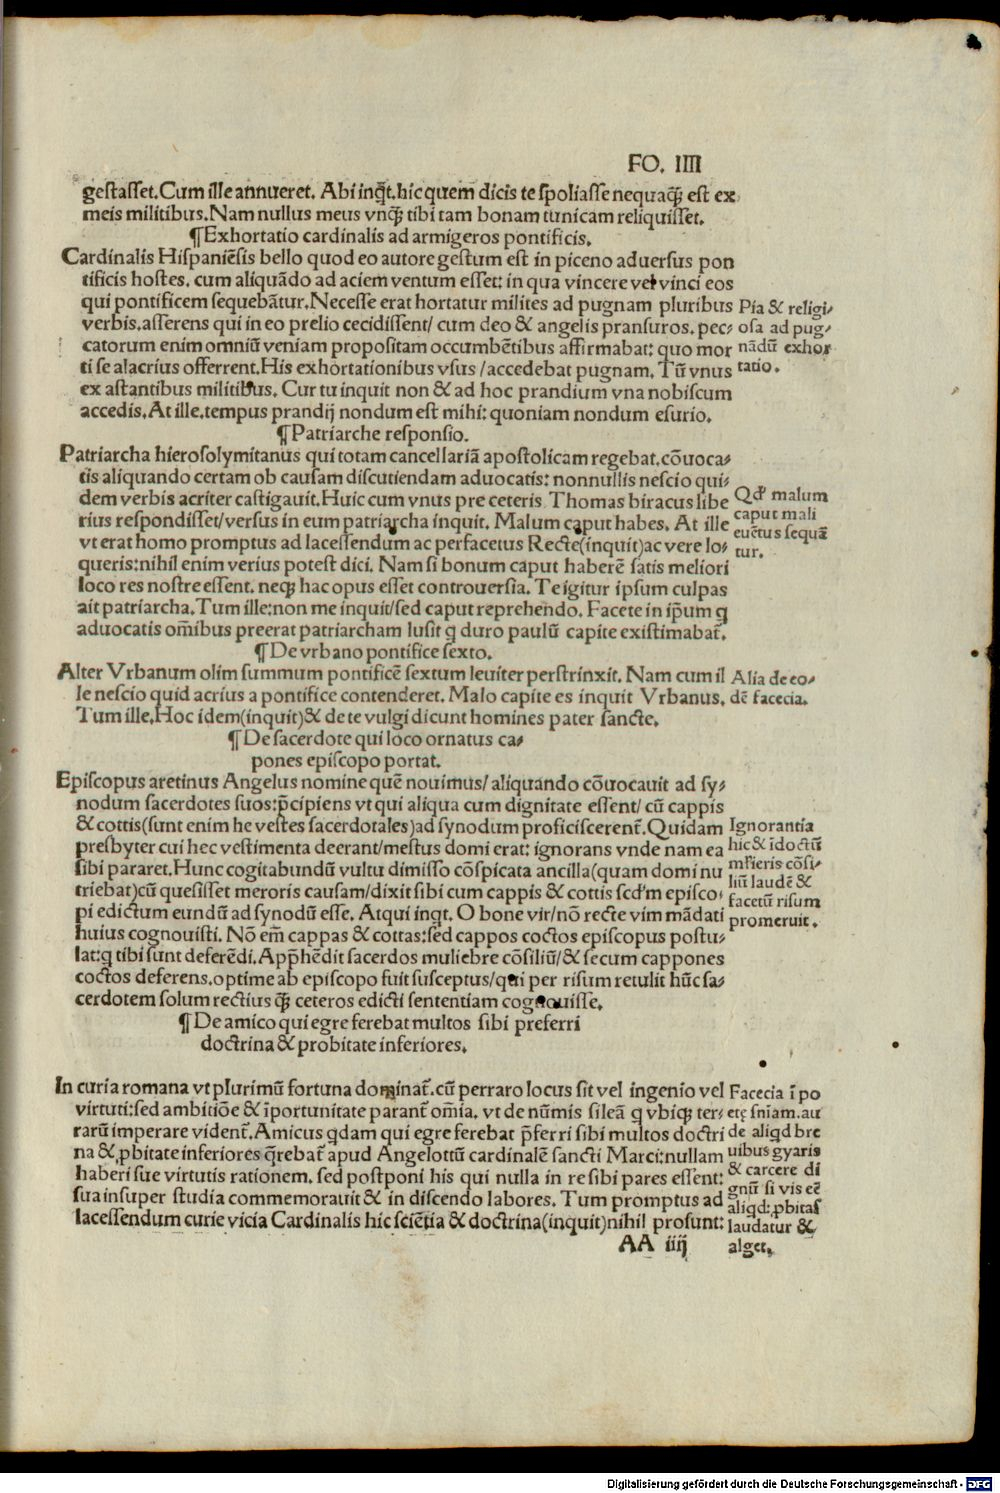 FO. IIII
gestasset. Cum ille annueret. Abi inqt. hic quem dicis te spoliasse nequaqꝫ est ex
meis militibus. Nam nullus meus vnqꝫ tibi tam bonam tunicam reliquisset.
¶ Exhortatio cardinalis ad armigeros pontificis.
Cardinalis Hispaniēsis bello quod eo autore gestum est in piceno aduersus pon
tificis hostes. cum aliquādo ad aciem ventum esset: in qua vincere vel vinci eos
qui pontificem sequebātur. Necesse erat hortatur milites ad pugnam pluribus
verbis. asserens qui in eo prelio cecidissent/ cum deo & angelis pransuros. pec⸗
catorum enim omniū veniam propositam occumbētibus affirmabat: quo mor
ti se alacrius offerrent. His exhortationibus vsus / accedebat pugnam. Tū vnus
ex astantibus militibus. Cur tu inquit non & ad hoc prandium vna nobiscum
accedis. At ille. tempus prandij nondum est mihi: quoniam nondum esurio.
Pia & religi⸗
osa ad pug⸗
nādū exhor
tatio.
¶ Patriarche responsio.
Patriarcha hierosolymitanus qui totam cancellariā apostolicam regebat. cōuoca⸗
tis aliquando certam ob causam discutiendam aduocatis: nonnullis nescio qui⸗
dem verbis acriter castigauit. Huic cum vnus pre ceteris Thomas biracus libe
rius respondisset/ versus in eum patriarcha inquit. Malum caput habes. At ille
vt erat homo promptus ad lacessendum ac perfacetus Recte(inquit)ac vere lo⸗
queris: nihil enim verius potest dici. Nam si bonum caput haberē satis meliori
loco res nostre essent. neqꝫ hac opus esset controuersia. Te igitur ipsum culpas
ait patriarcha. Tum ille: non me inquit/ sed caput reprehendo. Facete in ip̄um q
aduocatis om̄ibus preerat patriarcham lusit q duro paulū capite existimabat̄.
Qd' malum
caput mali
euētus sequā
tur.
¶ De vrbano pontifice sexto.
Alter Vrbanum olim summum pontificē sextum leuiter perstrinxit. Nam cum il
le nescio quid acrius a pontifice contenderet. Malo capite es inquit Vrbanus.
Tum ille. Hoc idem(inquit)& de te vulgi dicunt homines pater sancte.
Alia de eo⸗
dē facecia.
¶ De sacerdote qui loco ornatus ca⸗
pones episcopo portat.
Episcopus aretinus Angelus nomine quē nouimus/ aliquando cōuocauit ad sy⸗
nodum sacerdotes suos: p̄cipiens vt qui aliqua cum dignitate essent/ cū cappis
& cottis(sunt enim he vestes sacerdotales)ad synodum proficiscerent̄. Quidam
presbyter cui hec vestimenta deerant/ mestus domi erat: ignorans vnde nam ea
sibi pararet. Hunc cogitabundū vultu dimisso cōspicata ancilla(quam domi nu
triebat)cū quesisset meroris causam/ dixit sibi cum cappis & cottis scd'm episco⸗
pi edictum eundū ad synodū esse. Atqui inqt. O bone vir/ nō recte vim mādati
huius cognouisti. Nō em̄ cappas & cottas: sed cappos coctos episcopus postu⸗
lat: q tibi sunt deferēdi. App̄hēdit sacerdos muliebre cōsiliū/ & secum cappones
coctos deferens. optime ab episcopo fuit susceptus/ qui per risum retulit hūc sa⸗
cerdotem solum rectius qꝫ ceteros edicti sententiam cognouisse.
Ignorantia
hic & īdoctū
mľieris cōsi⸗
liū laudē &
facetū risum
promeruit.
¶ De amico qui egre ferebat multos sibi preferri
doctrina & probitate inferiores.
In curia romana vt plurimū fortuna dominat̄. cū perraro locus sit vel ingenio vel
virtuti: sed ambitiōe & īportunitate parant̄ om̄ia. vt de nūmis sileā q vbiqꝫ ter⸗
rarū imperare vident̄. Amicus qdam qui egre ferebat p̄ferri sibi multos doctri
na & ꝓbitate inferiores q̄rebat̄ apud Angelottū cardinalē sancti Marci: nullam
haberi sue virtutis rationem. sed postponi his qui nulla in re sibi pares essent:
sua insuper studia commemorauit & in discendo labores. Tum promptus ad
lacessendum curie vicia Cardinalis hic sciētia & doctrina(inquit)nihil prosunt:
Facecia ī po
etę sniam. au
de aliqd bre
uibus gyaris
& carcere di
gnū si vis eē
aliqd: ꝓbitas
laudatur &
alget.
AA iiij
Digitalisierung gefördert durch die Deutsche Forschungsgemeinschaft - DFG